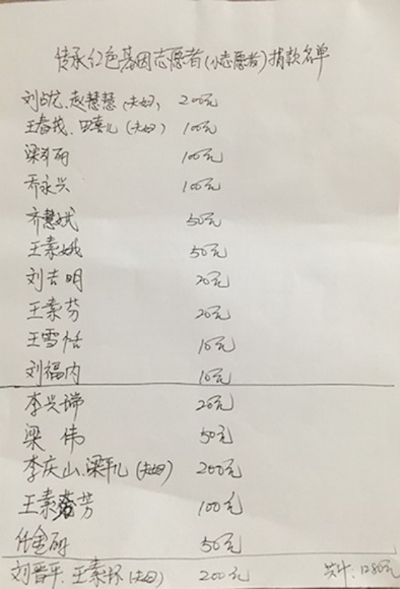 传承红色基因志愿者(小志愿者)捐款名单
刘占龙、赵慧慧(夫妇) 200元
王春茂、田喜儿(夫妇) 100元
梁丽 100元
乔永兴 100元
齐慧斌 50元
王素娥 50元
刘吉明 20元
王素芬 20元
王雪恬 10元
刘福内 10元
李兴瑞 20元
梁 伟 50元
李庆山、梁平儿(夫妇) 200元
王素芳 100元
任金丽 50元
刘晋平、王素环(夫妇) 200元 共计:1280元